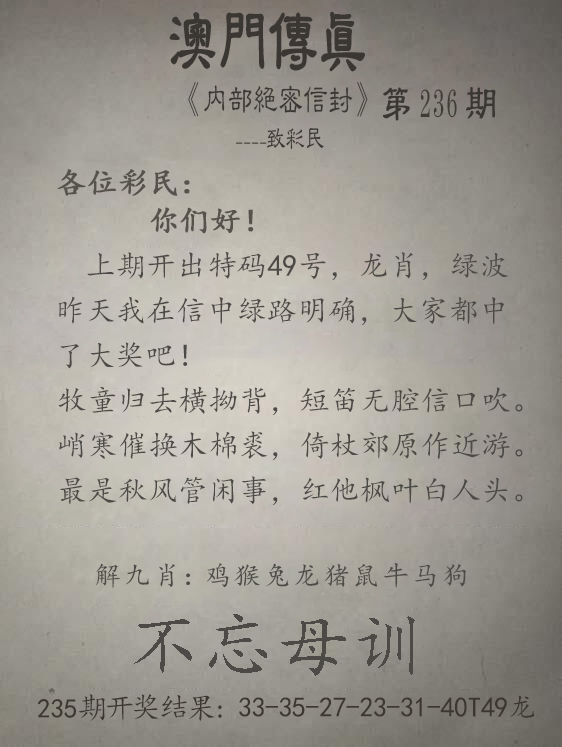 澳門傳眞
《内部絕密信封》第236期
----致彩民
各位彩民：
你们好！
上期开出特码49号，龙肖，绿波
昨天我在信中绿路明确，大家都中
了大奖吧！
牧童归去横拗背，短笛无腔信口吹。
峭寒催换木棉裘，倚杖郊原作近游。
最是秋风管闲事，红他枫叶白人头。
解九肖：鸡猴兔龙猪鼠牛马狗
不忘母训
235期开奖结果：33-35-27-23-31-40T49龙